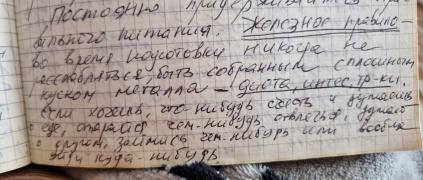 1. Постоянно придерживаться пра-
вильного питания. Железное правило -
во время подготовки никогда не
расслабляться, быть собранным сплошным
куском металла – диета, интес. тр-ки.
Если хочешь, что-нибудь съесть и думаешь
о еде, старайся чем-нибудь отвлечься, думай
о другом, займись чем-нибудь или вообще
уйди куда-нибудь